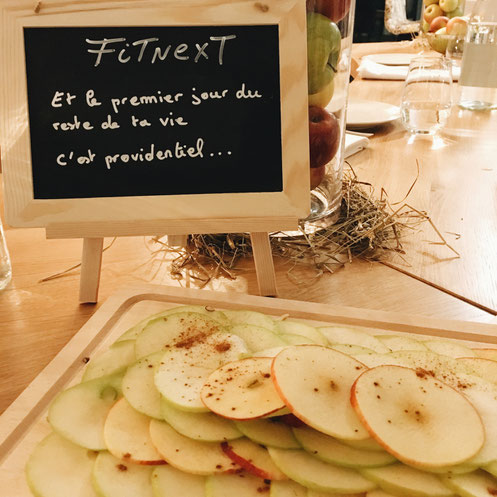 FiTNexT
Et le premier jour du
reste de ta vie
c'est providentiel...